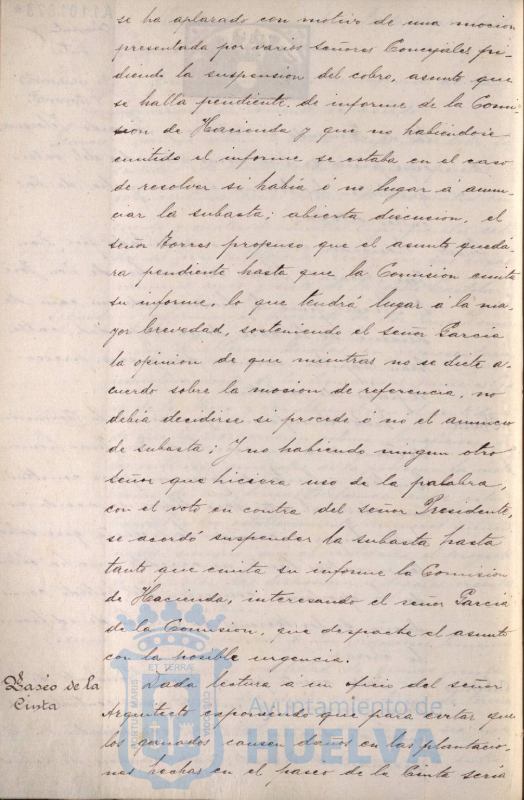 se ha aplazado con motivo de una mocion
presentada por varios señores Concejales pi-
diendo la suspension del cobro, asunto que
se halla pendiente de informe de la Comi-
sion de Hacienda y que no habiendose
emitido el informe se estaba en el caso
de resolver si había ó no lugar á anun-
ciar la subasta; abierta discusion, el
señor Torres propuso que el asunto quedá-
ra pendiente hasta que la Comision emita
su informe, lo que tendrá lugar á la ma-
yor brevedad, sosteniendo el señor Garcia
la opinion de que mientras no se dicte a-
cuerdo sobre la mocion de referencia, no
debia decidirse si procede ó no el anuncio
de subasta; Y no habiendo ningun otro
señor que hiciera uso de la palabra,
con el voto en contra del señor Presidente,
se acordó suspender la subasta hasta
tanto que emita su informe la Comision
de Hacienda, interesando el señor Garcia
de la Comision, que despache el asunto
con la posible urgencia.
Paseo de la
Cinta
Dada lectura á un oficio del señor
Arquitecto esponiendo que para evitar que
los ganados causen daños en las plantacio-
nes hechas en el paseo de la Cinta seria
Ayuntamiento de
HUELVA